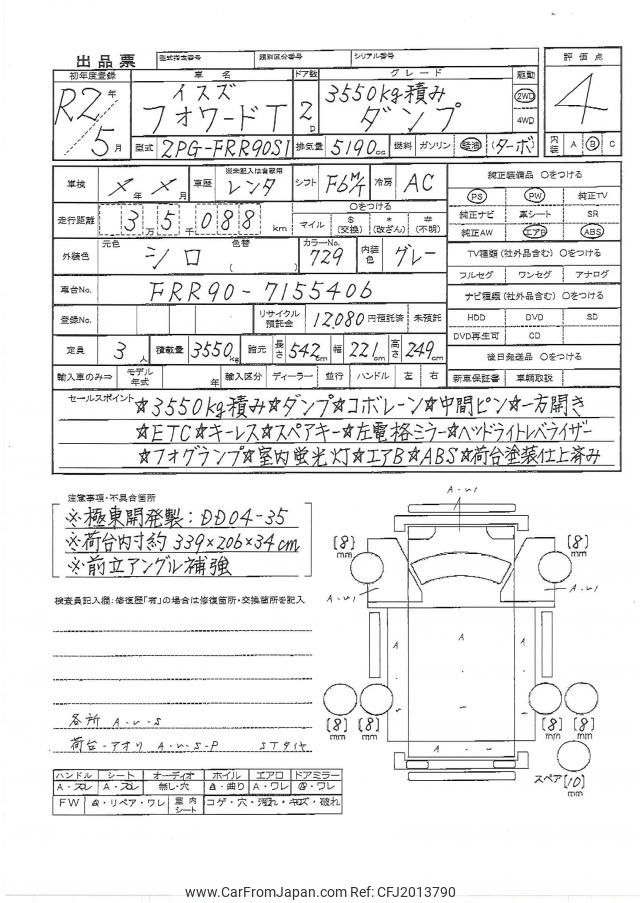 出品票 型式指定番号 類別区分番号 シリアル番号
初年度登録 車名 ドア数 グレード 駆動 評価点
R2年/5月 イスズ フォワードT 2D 3550kg積み ダンプ 2WD 4WD 4
型式 2PG-FRR90S1 排気量 5190cc 燃料 ガソリン 軽油 (ターボ) 内装 A B C
車検 ✗年 ✗月 車歴 ※未記入は自家用 レンタ シフト F6M/T 冷房 AC
純正装備品 ○をつける
PS PW 純正TV
純正ナビ 革シート SR
純正AW エアB ABS
走行距離 3万5千088km
○をつける
マイル $(交換) *(改ざん) #(不明)
外装色 元色 シロ 色替 ( ) カラーNo. 729 内装色 グレー
TV種類(社外品含む) ○をつける
フルセグ ワンセグ アナログ
車台No. FRR90-7155406
ナビ種類(社外品含む) ○をつける
HDD DVD SD
DVD再生可 CD
登録No. リサイクル預託金 12,080円預託済 未預託
定員 3人 積載量 3550kg 諸元 長さ 542cm 幅 221cm 高さ 249cm
後日発送品 ○をつける
輸入車のみ⇒ モデル年式 年 輸入区分 ディーラー 並行 ハンドル 左 右 新車保証書 車輌取説
セールスポイント ☆3550kg積み☆ダンプ☆コボレーン☆中間ピン☆一方開き
☆ETC☆キーレス☆スペアキー☆左電格ミラー☆ヘッドライトレベライザー
☆フォグランプ☆室内蛍光灯☆エアB☆ABS☆荷台塗装仕上済み
注意事項・不具合箇所
※極東開発製：DD04-35
※荷台内寸約 339×206×34cm
※前立アングル補強
検査員記入欄：修復歴「有」の場合は修復箇所・交換箇所を記入
各所 A-U-S
荷台-アオリ A-U-S-P STタイヤ
A-U1
[8]mm [8]mm
A-U1 A-U1
A A A
[8]mm [8]mm [8]mm [8]mm
A - U
スペア [10]mm
ハンドル シート オーディオ ホイル エアロ ドアミラー
A・スレ A・スレ 無し・穴 A・曲り A・ワレ A・ワレ
FW A・リペア・ワレ 室内シート コゲ・穴・汚れ・キズ・破れ
www.CarFromJapan.com Ref: CFJ2013790